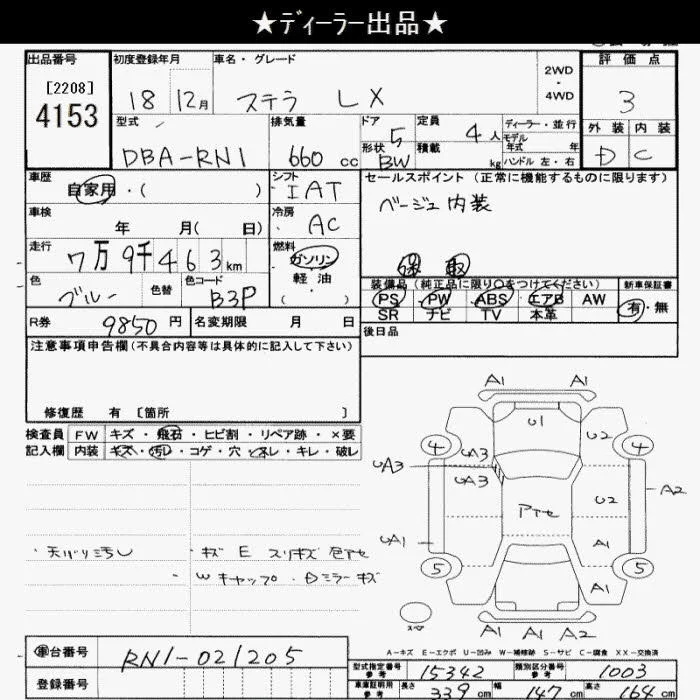 ★ディーラー出品★
出品番号
[2208]
4153
初度登録年月
18 12月
車名・グレード
ステラ LX
2WD
・
4WD
評価点
3
外装 内装
D C
型式
DBA-RN1
排気量
660 cc
ドア 5
形状 BW
定員 4人
積載 kg
ディーラー・並行
モデル
年式 年
ハンドル 左・右
車歴
自家用・( )
シフト
IAT
セールスポイント (正常に機能するものに限ります)
ベージュ内装
保 取
車検
年 月( 日)
冷房
AC
走行
7万9千463km
燃料
ガソリン
・
軽油
・
( )
色
ブルー
色替
色コード
B3P
装備品(純正品に限り○をつけてください) 新車保証書
PS PW ABS エアB AW
SR ナビ TV 本革
有・無
R券 9850円
名変期限 月 日
後日品
注意事項申告欄(不具合内容等は具体的に記入して下さい)
修復歴 有 〔箇所 〕
検査員 FW キズ・飛石・ヒビ割・リペア跡・×要
記入欄 内装 キズ・汚レ・コゲ・穴・スレ・キレ・破レ
・天バリ汚レ
・キズ E スリキズ 色アセ
・Wキャップ ・Dミラーキズ
A1 A1
U1
4 U2 4
UA3 UA3
A2
アセ U2
UA1 A1
5 A1 5
スペア
A1 A1 A2
A-キズ E-エクボ U-凹み W-補修跡 S-サビ C-腐食 XX-交換済
車台番号 RN1-021205
登録番号
型式指定番号 参考 15342
類別区分番号 参考 1003
車庫証明用 参考 長さ 339cm 幅 147cm 高さ 164cm